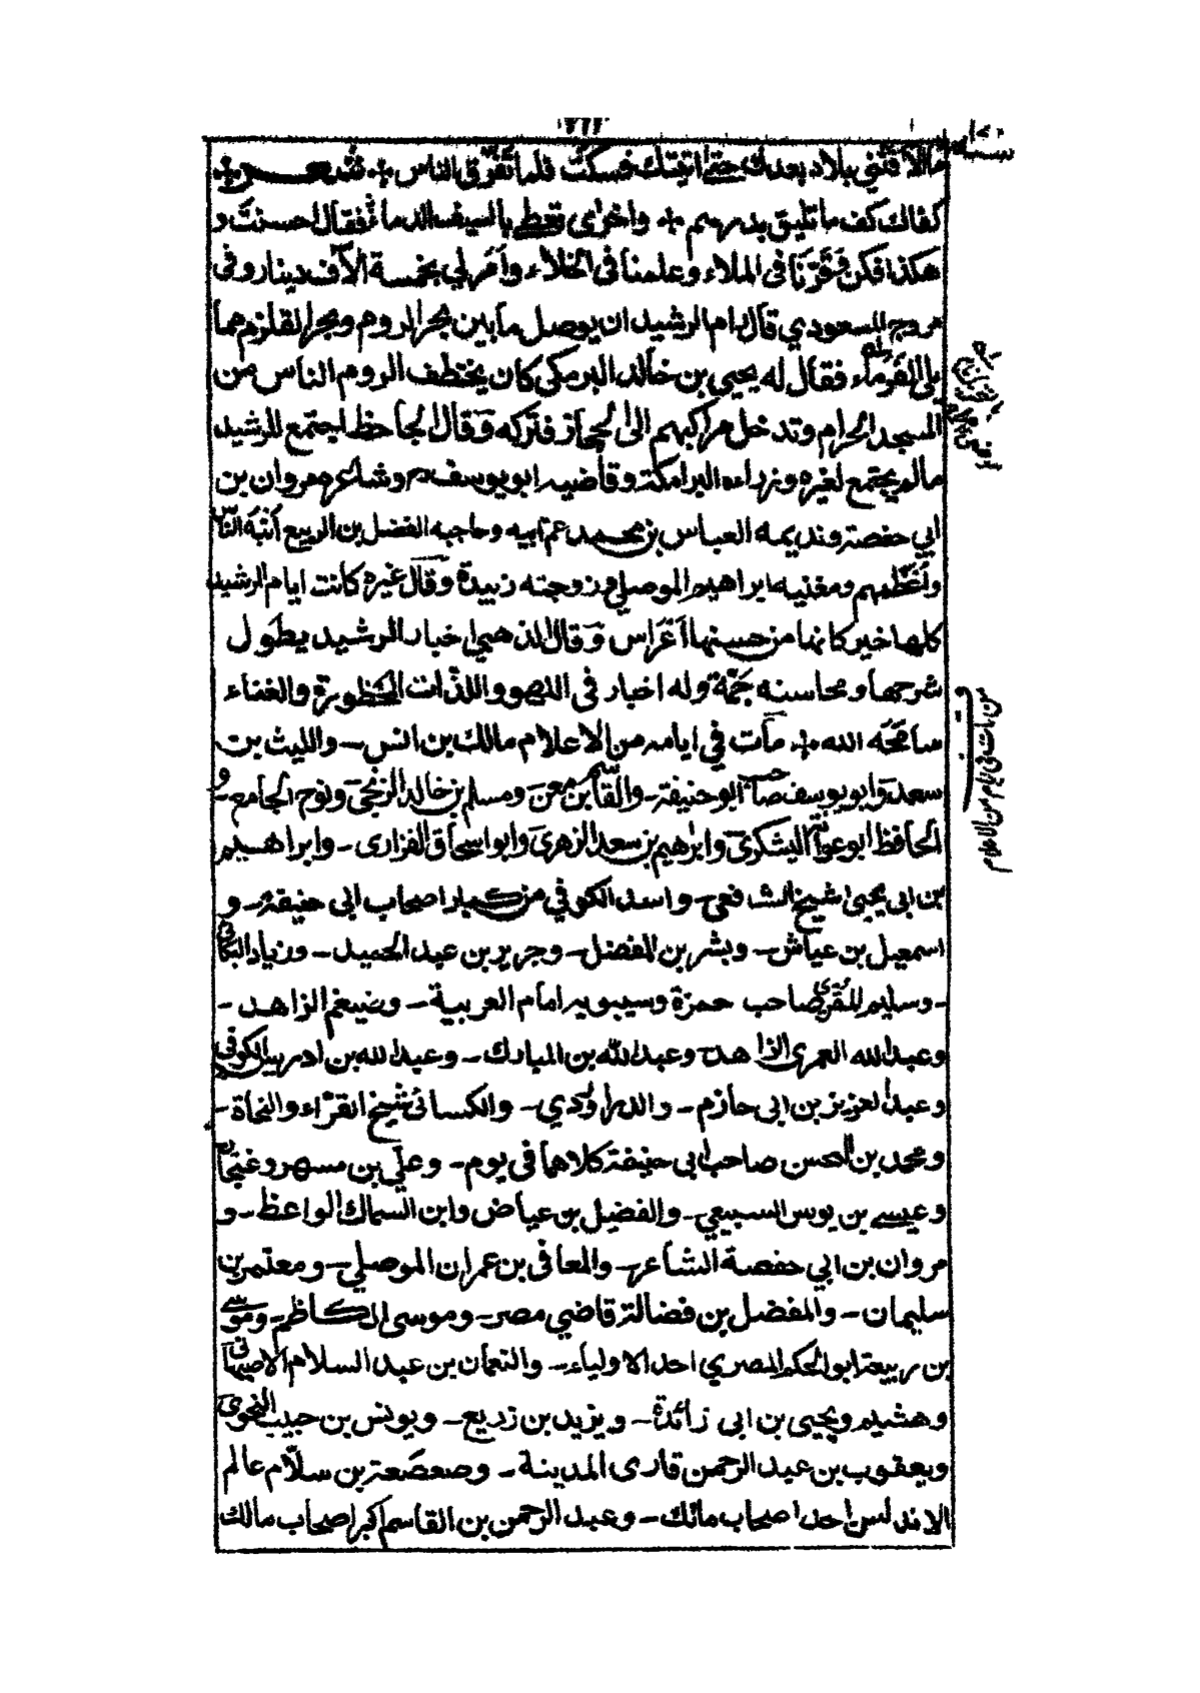 ما لاقتني بلاد بعدك حتى اتيتك فسكت فلما تفرق الناس شعر
كفاك كف ما تليق بدرهم واخرى تعط بالسيف الدما فقال احسنت و
هكذا فكن وقرنا فى الملاء وعلمنا فى الخلاء وأمر لي بخمسة آلاف دينار وفى
مروج المسعودي قال رام الرشيد ان يوصل ما بين بحر الروم وبحر القلزم مما
يلي الفرماء فقال له يحيى بن خالد البرمكى كان يختطف الروم الناس من
المسجد الحرام وتدخل مراكبهم الى الحجاز فتركه وقال الجاحظ اجتمع للرشيد
مالم يجتمع لغيره وزراءه البرامكة وقاضيه ابو يوسف وشاعره مروان بن
ابي حفصة ونديمه العباس بن محمد عم ابيه وحاجبه الفضل بن الربيع أنبه الناس
وأعظمهم ومغنيه ابراهيم الموصلي وزوجته زبيدة وقال غيره كانت ايام الرشيد
كلها خير كانها من حسنها أعراس وقال الذهبي اخبار الرشيد يطول
شرحها ومحاسنه جمة وله اخبار فى اللهو واللذات المحظورة والغناء
سامحه الله مات في ايامه من الاعلام مالك بن انس - والليث بن
سعد وابو يوسف صاحب ابو حنيفة - والقاسم بن معن ومسلم بن خالد الزنجى ونوح الجامع - و
الحافظ ابو عوانة اليشكرى وابرهيم بن سعد الزهرى وابو اسحاق الفزارى - وابراهيم
بن ابى يحيى شيخ الشافعي - واسد الكوفي من كبار اصحاب ابى حنيفة - و
اسمعيل بن عياش - وبشر بن المفضل - وجرير بن عبد الحميد - وزياد البكائى
- وسليم المقري صاحب حمزة وسيبويه امام العربية - وضيغم الزاهد -
وعبد الله العمرى الزاهد وعبد الله بن المبارك - وعبد الله بن ادريس الكوفى
وعبد العزيز بن ابى حازم - والدراوردي - والكسائى شيخ القراء والنحاة -
ومحمد بن الحسن صاحب ابي حنيفة كلاهما فى يوم - وعلي بن مسهر وغنجار
وعيسى بن يونس السبيعي - والفضيل بن عياض وابن السماك الواعظ - و
مروان بن ابي حفصة الشاعر - والمعافى بن عمران الموصلي - ومعتمر بن
سليمان - والمفضل بن فضالة قاضي مصر - وموسى الكاظم - وموسى
بن ربيعة ابو الحكم المصري احد الاولياء - والنعمان بن عبد السلام الاصبهانى
وهشيم ويحيى بن ابى زائدة - ويزيد بن زريع - ويونس بن حبيب النحوى
ويعقوب بن عبد الرحمن قارى المدينة - وصعصعة بن سلّام عالم
الاندلس احد اصحاب مالك - وعبد الرحمن بن القاسم اكبر اصحاب مالك
من مات فى ايامه من الاعلام